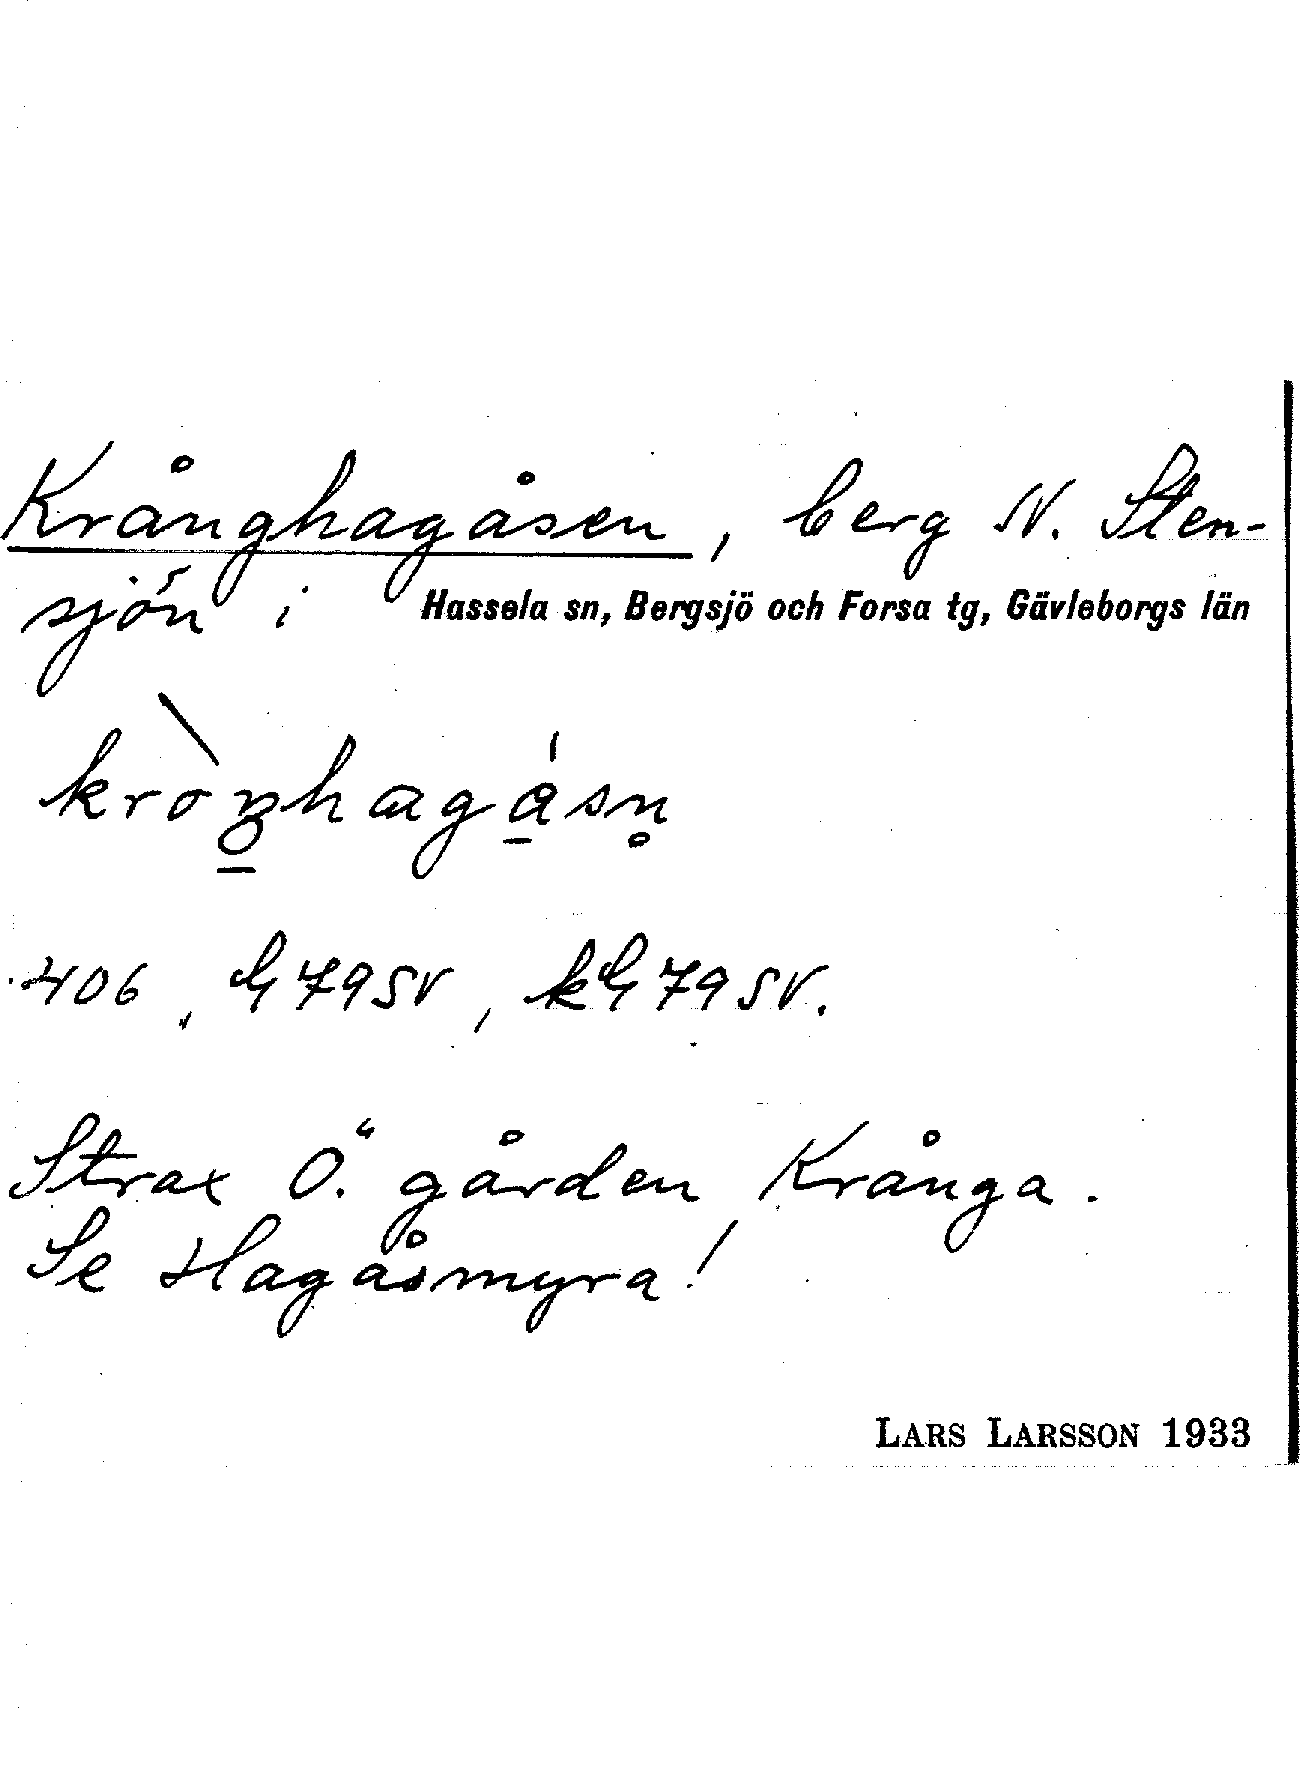 Krånghagåsen, berg N. Sten-
sjön i Hassela sn, Bergsjö och Forsa tg, Gävleborgs län
406, G79SV, kG79SV.
Strax Ö. gården Krånga.
Se Hagåsmyra!
LARS LARSSON 1933